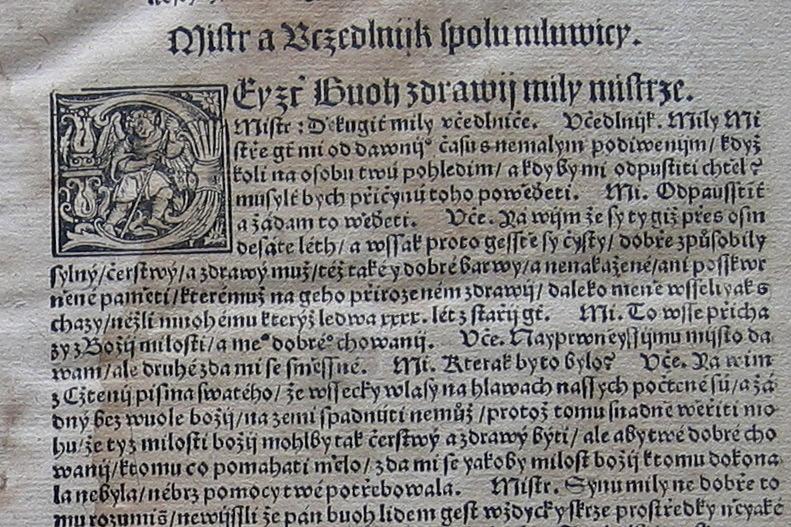 Mistr a Vczedlnijk spolu mluwicy.
Eyżť Buoh zdrawij mily mistrze.
Mistr: Děkugiť mily včedlniče. Včedlnijk. Mily Mi
stře gť mi od dawnijº času s nemalym podiwenijm/ když
koli na osobu twú pohledim/ a kdyby mi odpustiti chtěl?
musylť bych přičynu toho powědeti. Mi. Odpausstiť
a žádam to wědeti. Vče. Na wijm že sy ty giž přes osm
desáte léth/ a wssak proto gesstě sy čysty/ dobře způsobily
sylný/čerstwý/a zdrawý muž/též také y dobré barwy/a nenakažené/ani posskwr
něné paměti/kterémuž na geho přirozeném zdrawij/ daleko méně wsselijak s
chazy/něžli mnohému kterýž ledwa xxxx. lét z stařij gť. Mi. To wsse přicha
zy z Božij milosti/a méº dobréº chowanij. Vče. Nayprwněyssijmu mijsto da
wám/ale druhé zda mi se směssné. Mi. Kterak by to bylo? Vče. Na wim
z Cžtenij pisma swatého/ že wssecky wlasy na hlawach nassych počtené sú/a žá
dný bez wuole božij/na zemi spadnuti nemůž/protož tomu snadně wěřiti mo
hu/že ty z milosti božij mohlby tak čerstwý a zdrawý býti/ ale aby twé dobré cho
wanij/k tomu co pomahati mělo/zda mi se yakoby milost božij k tomu dokona
la nebyla/nébrz pomocy twé potřebowala. Mistr. Synu mily ne dobře to
mu rozumiš/newijssli že pán buoh lidem gest wždycky skrze prostředky něyaké